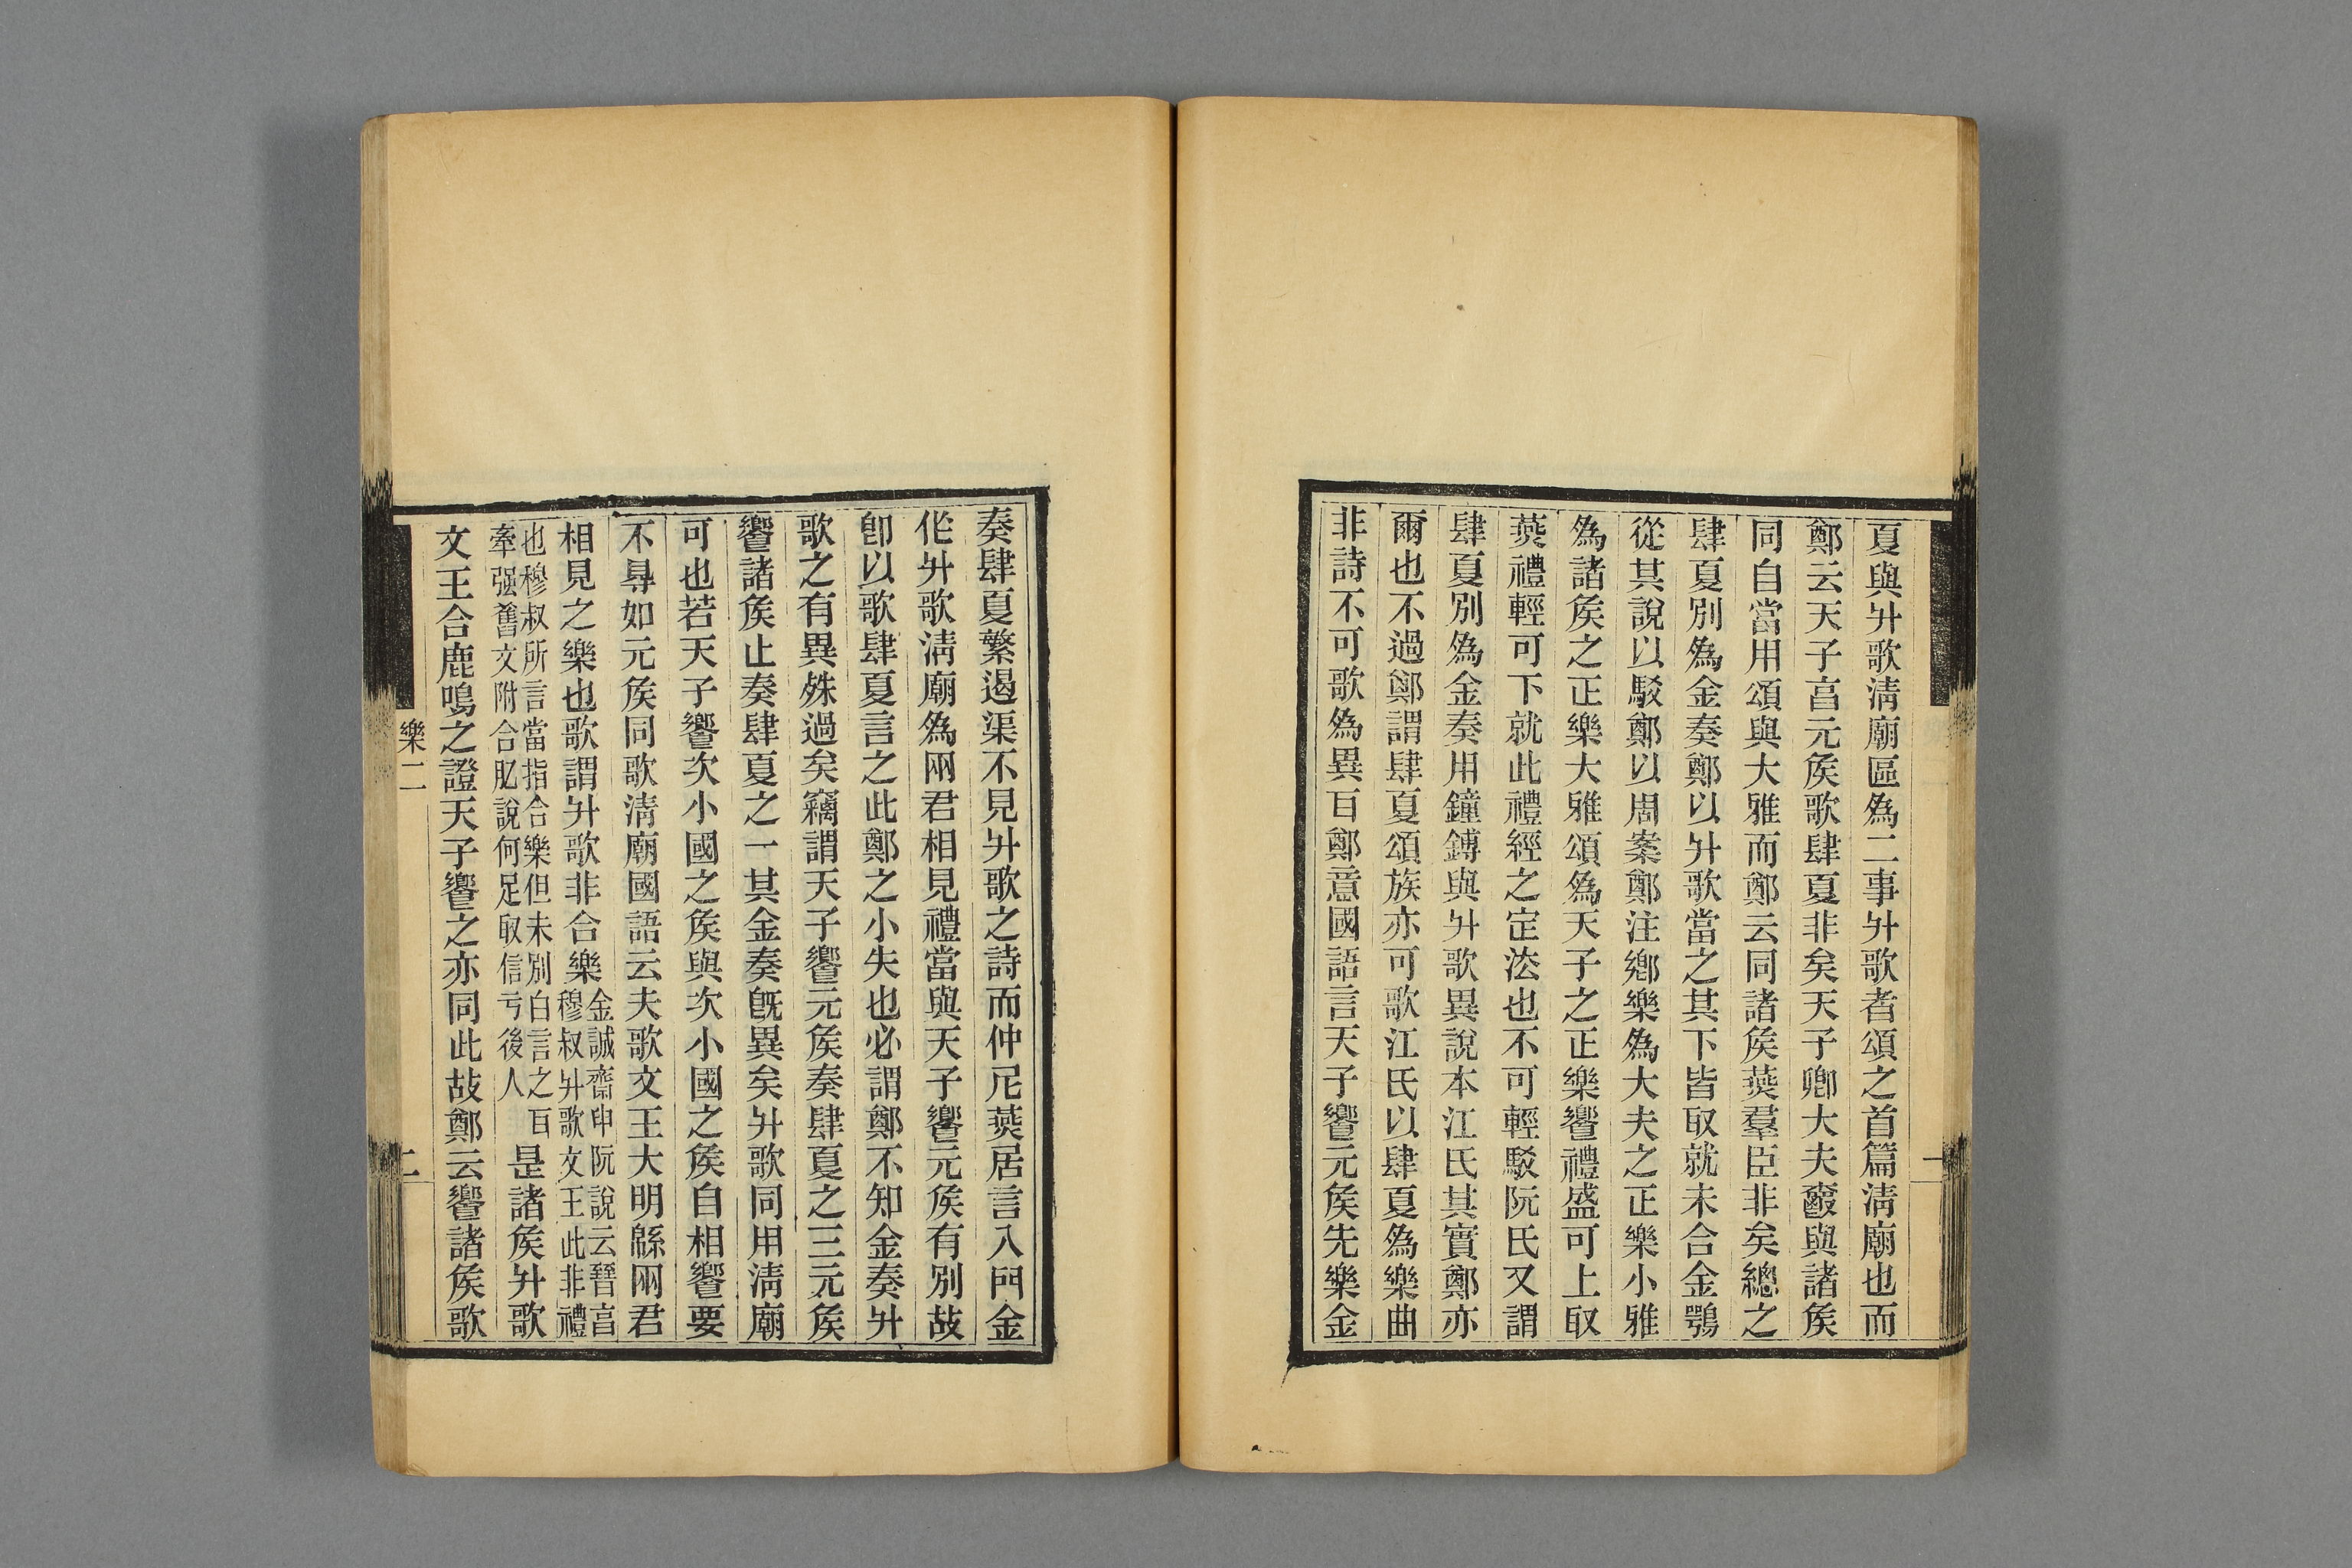 夏與升歌淸廟區為二事升歌者頌之首篇淸廟也而
鄭云天子亯元矦歌肆夏非矣天子卿大夫㪅與諸矦
同自當用頌與大雅而鄭云同諸矦燕羣臣非矣總之
肆夏別為金奏鄭以升歌當之其下皆取就未合金鶚
從其說以駁鄭以周案鄭注鄉樂為大夫之正樂小雅
為諸矦之正樂大雅頌為天子之正樂饗禮盛可上取
燕禮輕可下就此禮經之定法也不可輕駁阮氏又謂
肆夏別為金奏用鐘鎛與升歌異說本江氏其實鄭亦
爾也不過鄭謂肆夏頌族亦可歌江氏以肆夏為樂曲
非詩不可歌為異百鄭意國語言天子饗元矦先樂金
奏肆夏繁遏渠不見升歌之詩而仲尼燕居言入門金
作升歌淸廟為兩君相見禮當與天子饗元矦有別故
卽以歌肆夏言之此鄭之小失也必謂鄭不知金奏升
歌之有異殊過矣竊謂天子饗元矦奏肆夏之三元矦
饗諸矦止奏肆夏之一其金奏旣異矣升歌同用淸廟
可也若天子饗次小國之矦與次小國之矦自相饗要
不㝵如元矦同歌淸廟國語云夫歌文王大明緜兩君
相見之樂也歌謂升歌非合樂金誠齋申阮說云晉亯穆叔升歌文王此非禮
也穆叔所言當指合樂但未別白言之百牽强舊文附合肊說何足取信亏後人是諸矦升歌
文王合鹿鳴之證天子饗之亦同此故鄭云饗諸矦歌
樂二
二
一